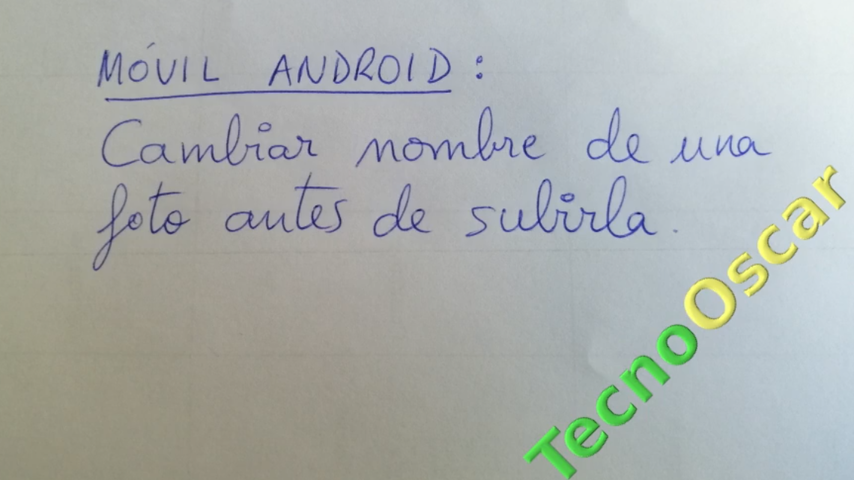 MÓVIL ANDROID:
Cambiar nombre de una
foto antes de subirla.
TecnoOscar